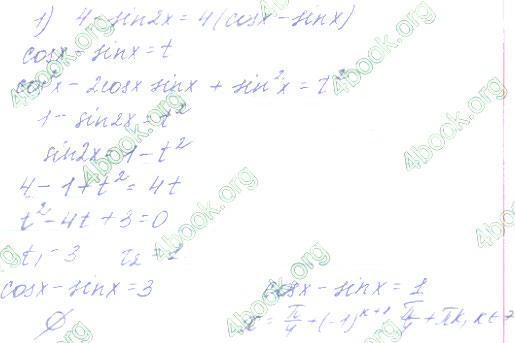 1) 4 - sin2x = 4(cosx - sinx)
cosx - sinx = t
cos²x - 2cosx sinx + sin²x = t²
1 - sin2x = t²
sin2x = 1 - t²
4 - 1 + t² = 4t
t² - 4t + 3 = 0
t₁ = 3 t₂ = 1
cosx - sinx = 3 cosx - sinx = 1
∅ x = π/4 + (-1)^(k+1) π/4 + πk, k∈Z
4book.org
4book.org
4book.org
4book.org
4book.org
4book.org
4book.org
4book.org